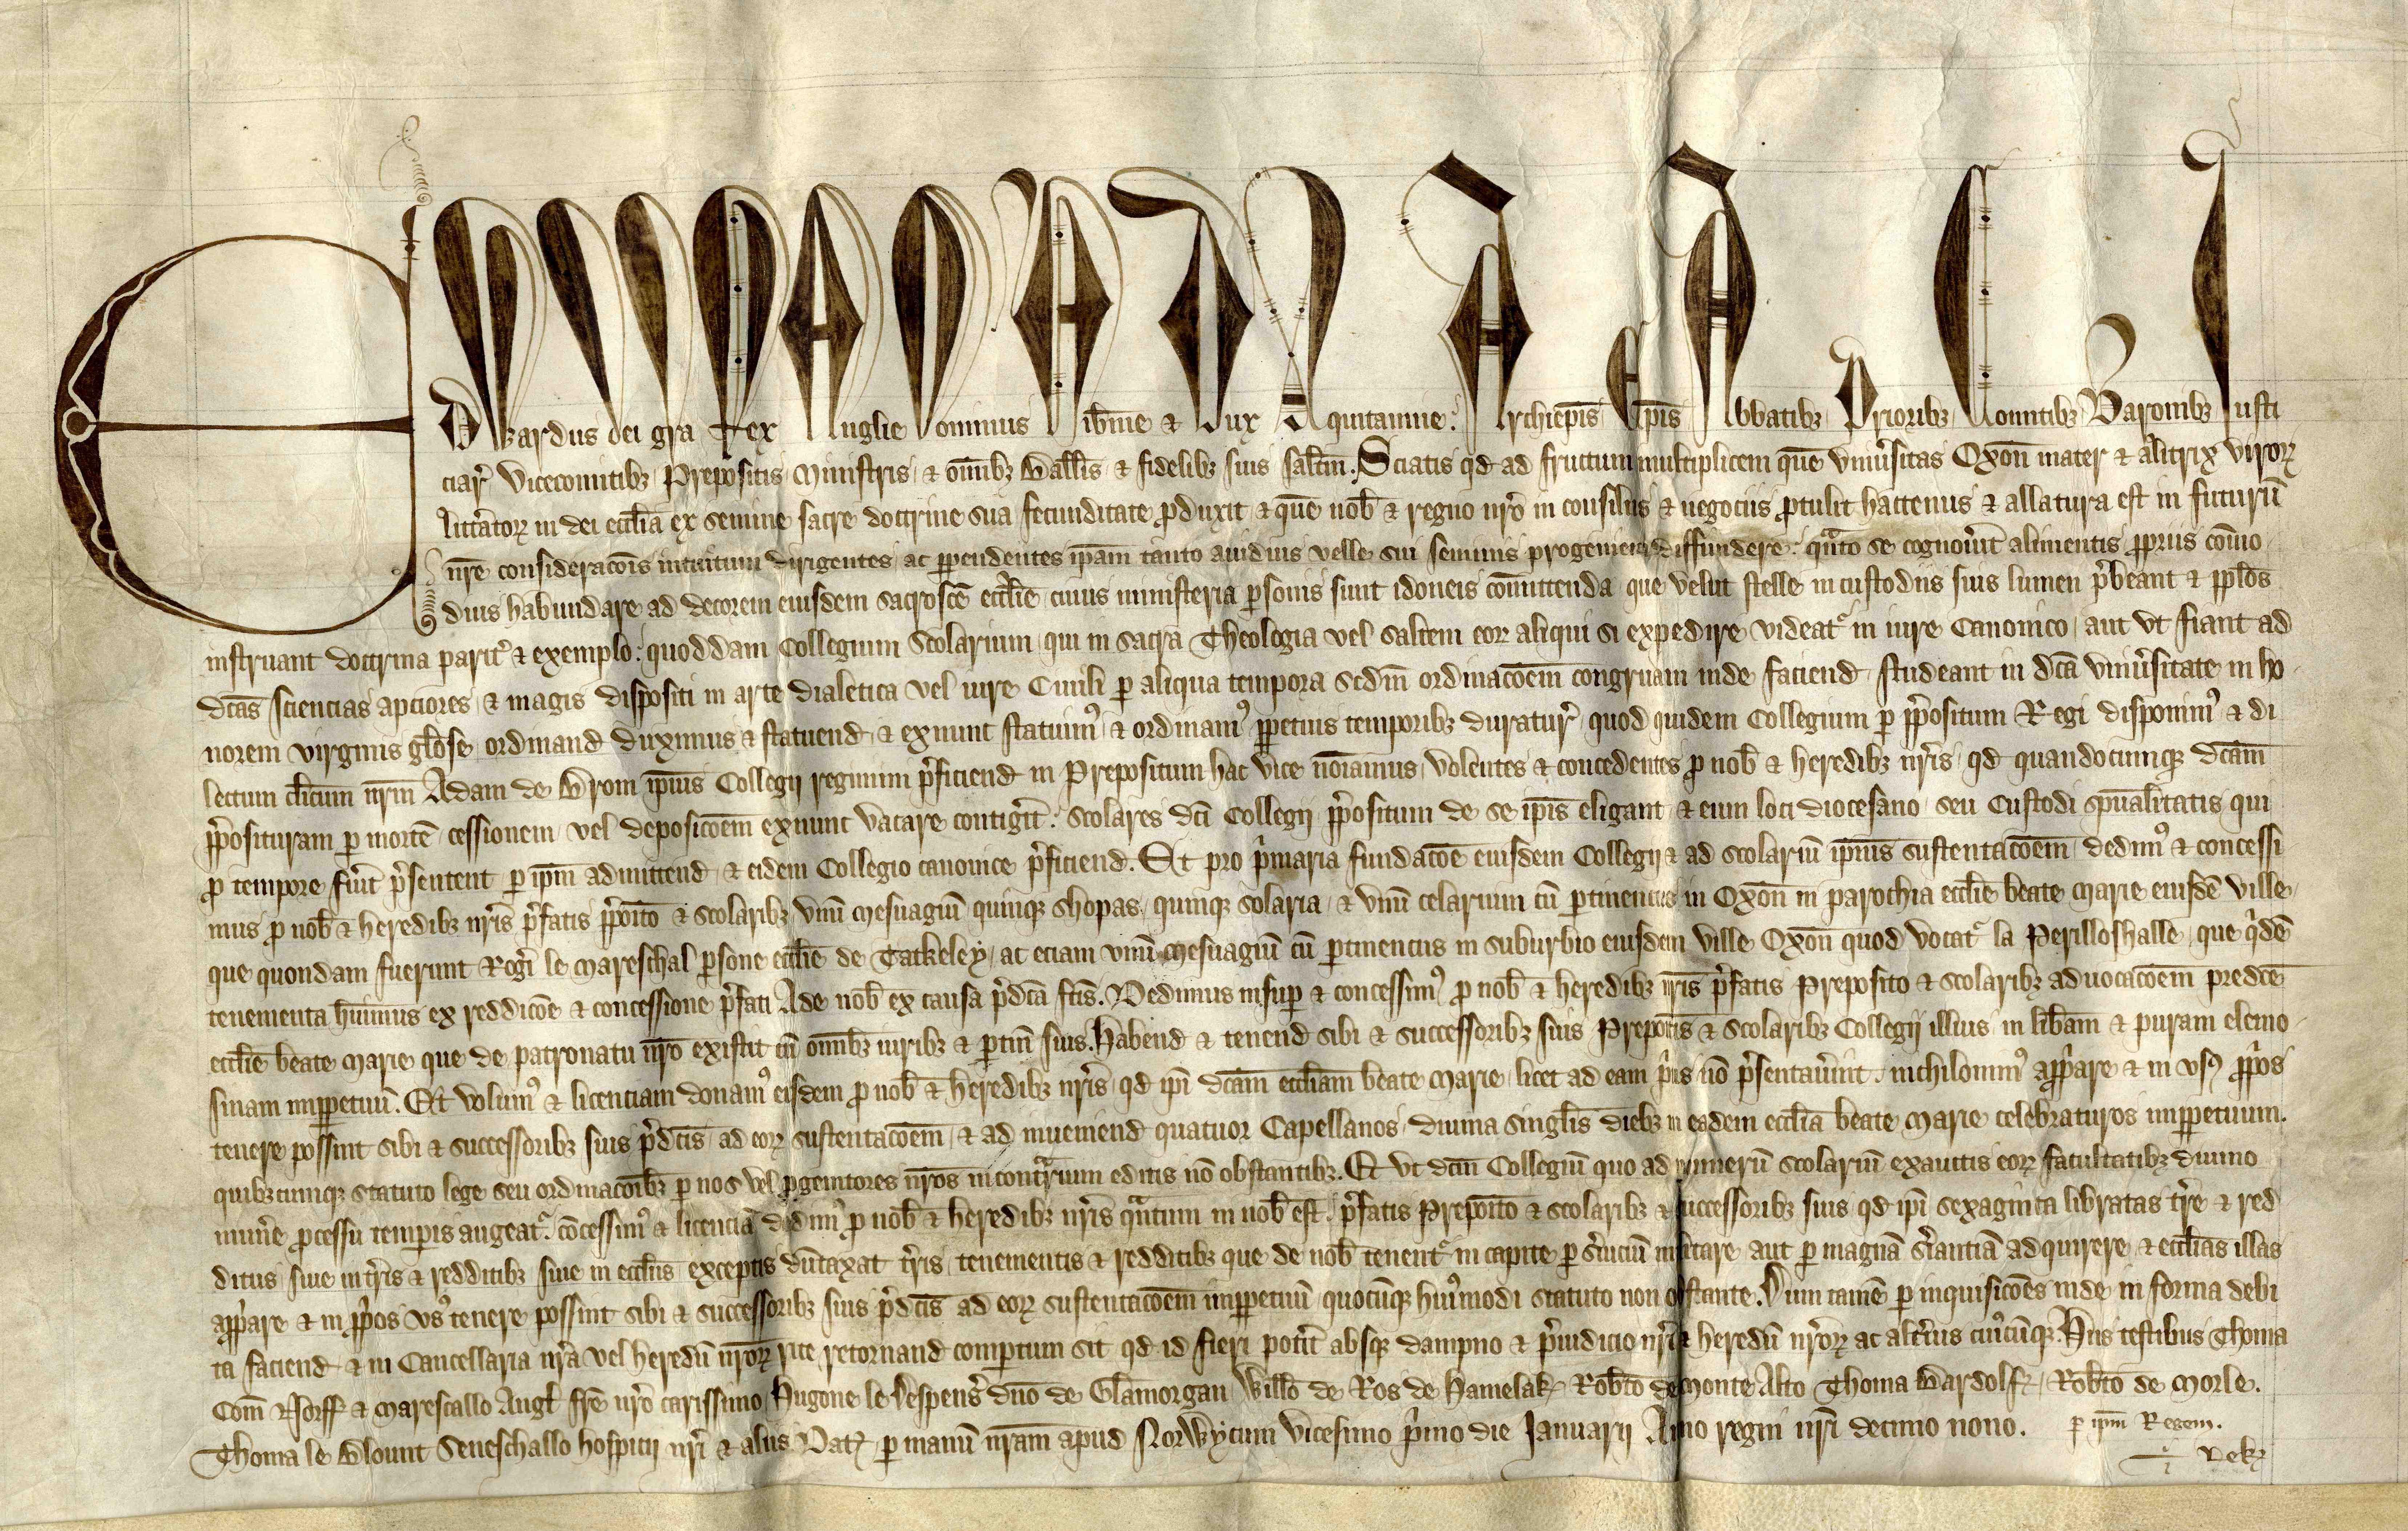 Edwardus dei gra Rex Anglie Dominus Hibnie & Dux Aquitannie. Archiepis Epis Abbatibz Prioribz Comitibz Baronibz Justi
ciar Vicecomitibz Prepositis Ministris & omibz Ballis & fidelibz suis saltm. Sciatis qd ad fructum multiplicem quem Vniusitas Oxon mater & altrix virorz
littatorz in dei ecclia ex semine sacre doctrine sua fecunditate pduxit & quem nob & regno nro in consiliis & negociis ptulit hactenus & allatura est in futurum
nre consideracois intuitum dirigentes ac ppendentes ipam tanto auidius velle sui seminis progeniem diffundere qnto se cognouit alimentis ppriis como
dius habundare ad decorem eiusdem sacrosce ecclie cuius ministeria psonis sunt idoneis comittenda que velut stelle in custodiis suis lumen pbeant & pplos
instruant doctrina parit & exemplo quoddam Collegium Scolarium qui in sacra Theologia vel saltem eor aliqui si expedire videat in iure Canonico aut vt fiant ad
dcas sciencias apciores & magis dispositi in arte dialetica vel iure Ciuili p aliqua tempora scdm ordinacoem congruam inde faciend studeant in dca vniusitate in ho
norem virginis glose ordinand duximus & statuend & exnunc statuim & ordinam ppetuis temporibz duratur quod quidem Collegium p ppositum Regi disponim & di
lectum clicum nrm Adam de Brom ipius Collegij regimini pficiend in Prepositum hac vice noiamus volentes & concedentes p nob & heredibz nris qd quandocumqz dcam
pposituram p mortem cessionem vel deposicoem exnunc vacare contigit Scolares dci Collegij ppositum de se ipis eligant & eum loci diocesano seu Custodi spualitatis qui
p tempore fuit psentent p ipm admittend & eidem Collegio canonice pficiend. Et pro pmaria fundacoe eiusdem Collegij & ad scolarium ipius sustentacoem dedim & concessi
mus p nob & heredibz nris pfatis pposito & scolaribz vnum mesuagium quinqz shopas quinqz solaria & vnum celarium cum ptinenciis in Oxon in parochia ecclie beate Marie eiusdem ville
que quondam fuerunt Rogi le Mareschal psone ecclie de Tatkeley ac eciam vnum mesuagium cum ptinenciis in suburbio eiusdem ville Oxon quod vocat la Perilloshalle que qidem
tenementa huimus ex reddicoe & concessione pfati Ade nob ex causa pdca fcis. Dedimus insup & concessim p nob & heredibz nris pfatis Preposito & scolaribz aduocacoem predce
ecclie beate Marie que de patronatu nro existit cum omibz iuribz & ptin suis. Habend & tenend sibi & successoribz suis Prepoitis & Scolaribz Collegij illius in libam & puram elemo
sinam imppetuum. Et volum & licenciam donam eisdem p nob & heredibz nris qd ipi dcam eccliam beate Marie licet ad eam pus no psentauint nichilomin apppare & in vsus ppos
tenere possint sibi & successoribz suis pdcis ad eorz sustentacoem & ad inueniend quatuor Capellanos diuina singlis diebz in eadem ecclia beate Marie celebraturos imppetuum.
quibzcumqz statuto lege seu ordinacoibz p nos vel pgenitores nros in contrarium editis no obstantibz. Et vt dcm Collegium quo ad numerum scolarium exauctis eorz facultatibz diuino
munere pcessu temporis augeat concessim & licenciam dedim p nob & heredibz nris qntum in nob est pfatis Preposito & scolaribz & successoribz suis qd ipi sexaginta libratas tre & red
ditus siue in tris & redditibz siue in ecclijs exceptis dumtaxat tris tenementis & redditibz que de nob tenent in capite p seruicium militare aut p magnam siantiam adquirere & ecclias illas
apppare & in ppos vsus tenere possint sibi & successoribz suis pdcis ad eorz sustentacoem imppetuum quocumqz huiusmodi statuto non obstante. Dum tamen p inquisicoes inde in forma debi
ta faciend & in Cancellaria nra vel heredum nrorz rite retornand comptum sit qd id fieri potit absqz dampno & piudicio nri & heredum nrorz ac altius cuiuscumqz. Hiis testibus Thoma
Com Norff & Marescallo Angl fre nro carissimo Hugone le Despens dno de Glamorgan Willo de Ros de Hamelak Robto de Monte Alto Thoma Bardolf Robto de Morle.
Thoma le Blount Seneschallo hospicij nri & aliis Dat p manum nram apud Norwycum vicesimo pmo die Januarij Anno regni nri decimo nono. p ipm Regem.